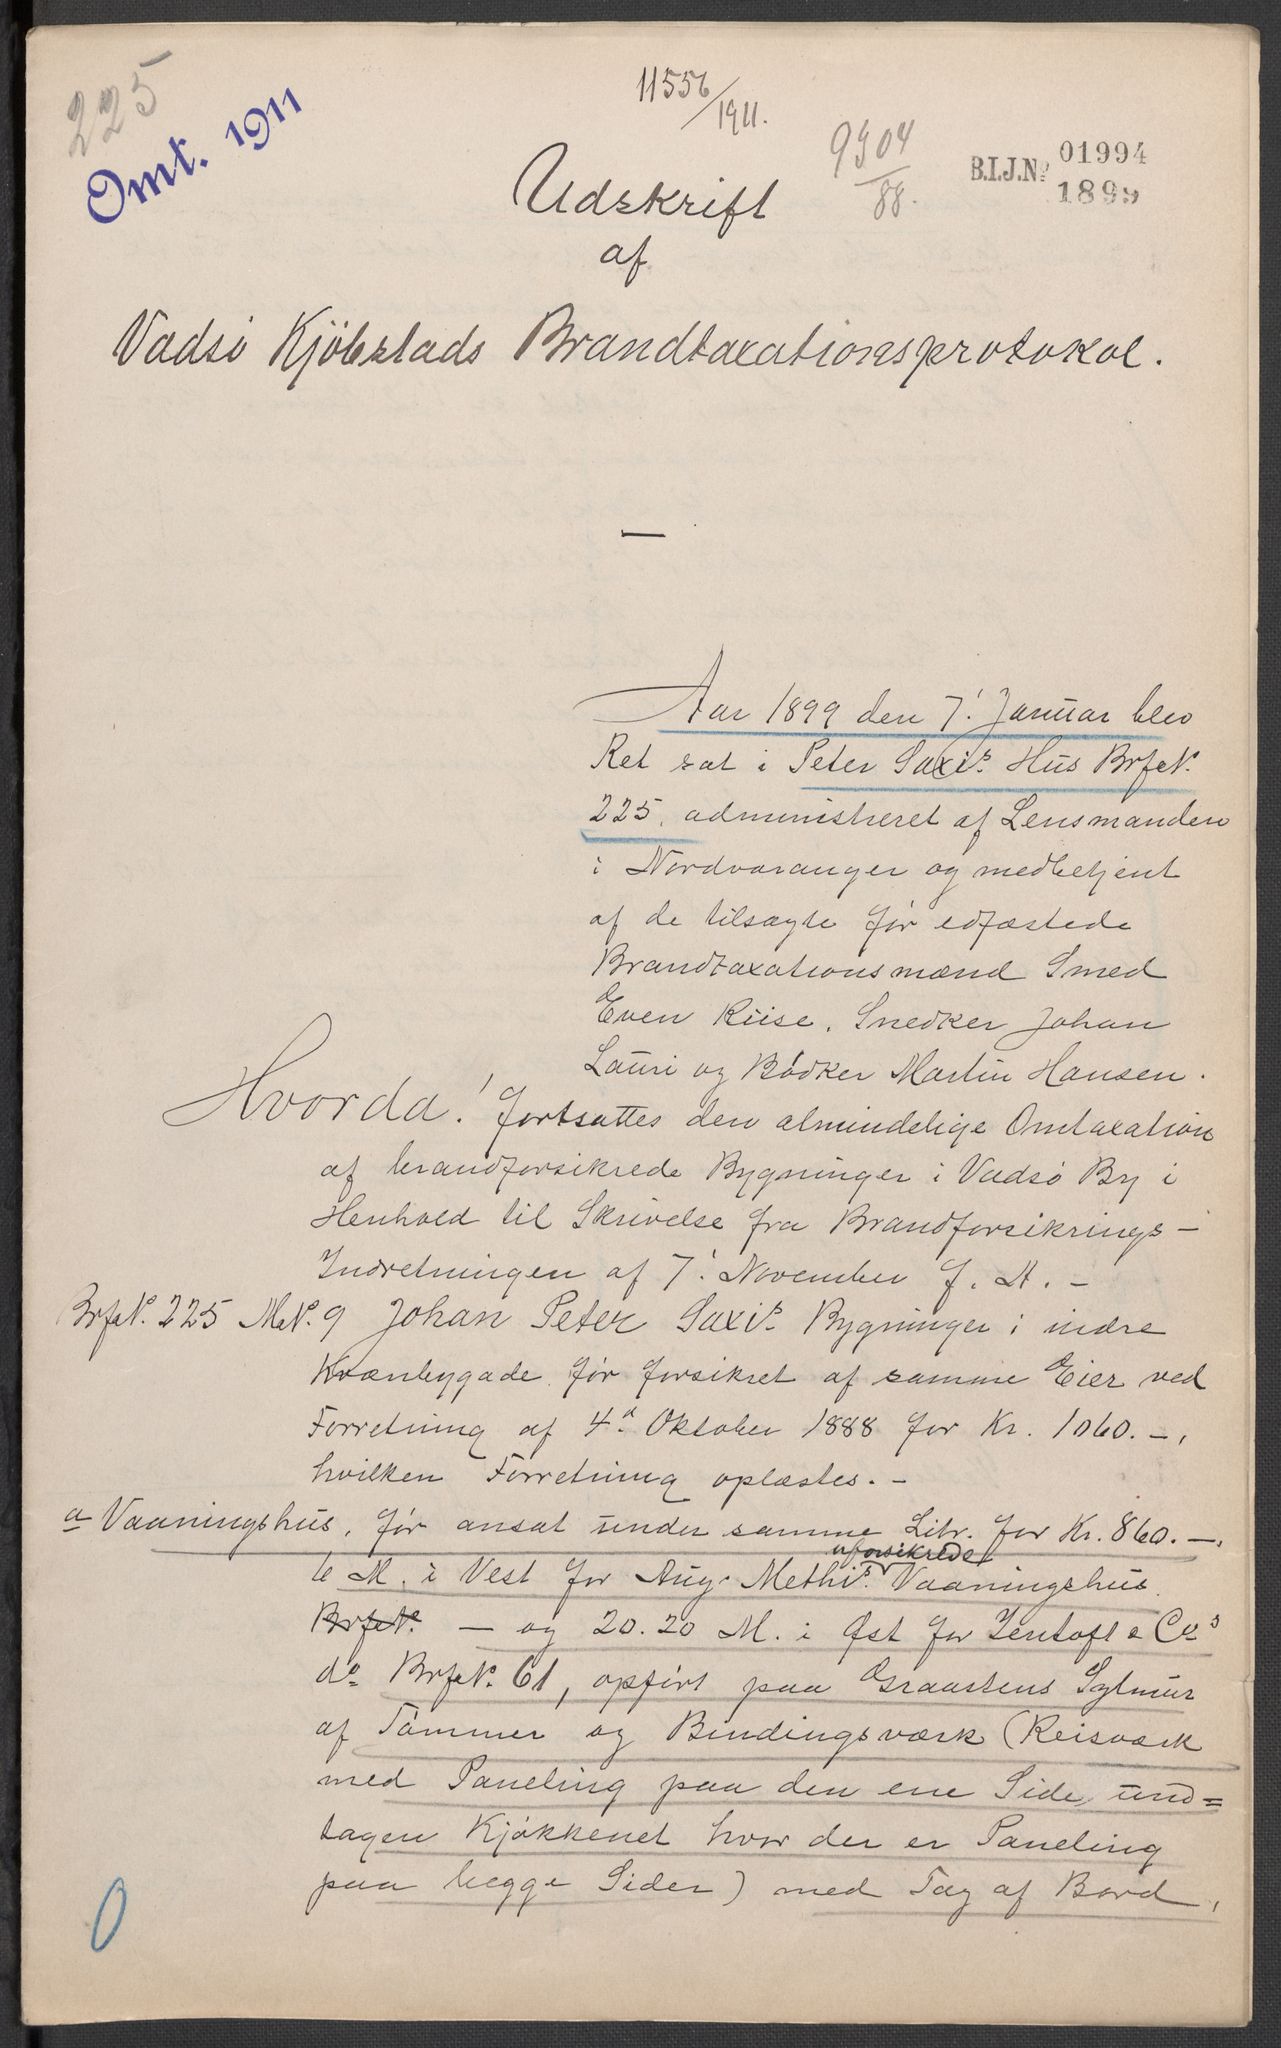 225
Omt. 1911
11556/1911.
9304/88.
B.I.J.No. 01994
1899
Udskrift
af
Vadsö Kjöbstads Brandtaxationsprotokol.
—
Aar 1899 den 7. Januar blev
Ret sat i Peter Saxis Hus BrfN.
225, administreret af Lensmanden
i Nordvaranger og medbetjent
af de tilsagte för edfæstede
Brandtaxationsmænd Smed
Even Riise, Snedker Johan
Lauri og Bödker Martin Hansen.
Hvorda! fortsattes den almindelige Omtaxation
af brandforsikrede Bygninger i Vadsö By i
Henhold til Skrivelse fra Brandforsikrings-
Indretningen af 7. November f. A. -
BrfN. 225 MN. 9 Johan Peter Saxis Bygninger i indre
Kvænbygade för forsikret af samme Eier ved
Forretning af 4d. Oktober 1888 for Kr. 1060.-,
hvilken Forretning oplæstes. -
a Vaaningshus, för ansat under samme Litr. for Kr. 860.-,
6 M. i Vest for Aug. Methis uforsikrede Vaaningshus
BrfN. — og 20.20 M. i Øst for Zentoft & Cos
do BrfN. 61, opfört paa Graastens Sylmur
af Tömmer og Bindingsværk (Reisværk
med Paneling paa den ene Side, und=
tagen Kjökkenet hvor der er Paneling
paa begge Sider) med Tag af Bord,
0